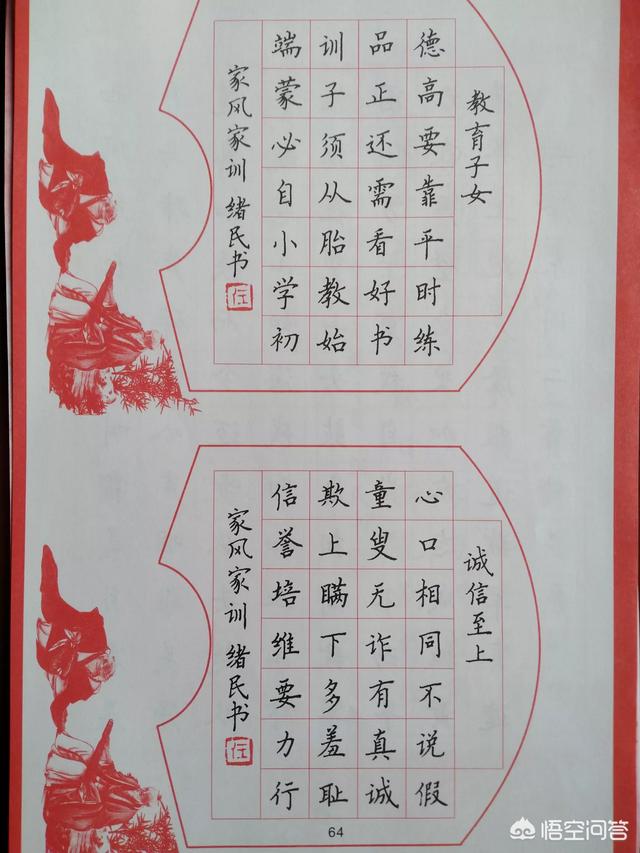 教育子女
德高要靠平时练
品正还需看好书
训子须从胎教始
端蒙必自小学初
家风家训 绪民书
任
诚信至上
心口相同不说假
童叟无诈有真诚
欺上瞒下多羞耻
信誉培维要力行
家风家训 绪民书
任
64
悟空问答